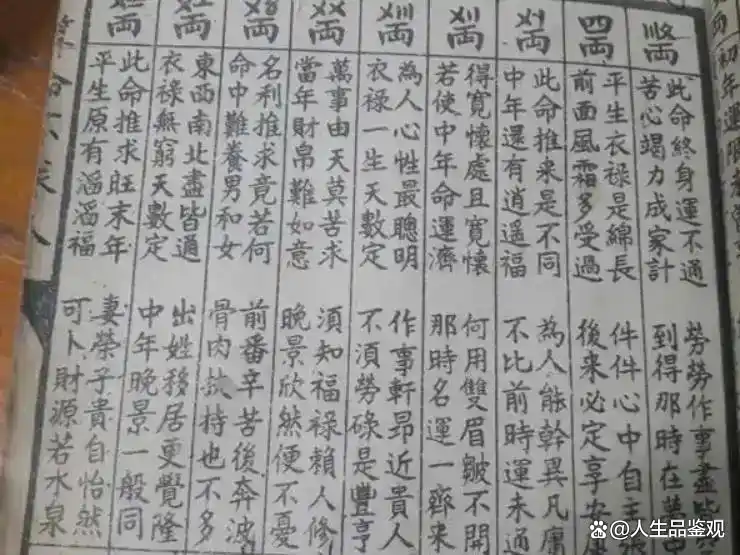 初年運限未曾
両
此命終身運不通 勞勞作事盡
苦心竭力成家計 到得那時在
四両
平生衣禄是綿長 件件心中自主
前面風霜多受過 後来必定享安
〤〡両
此命推来是不同 為人能幹異凡庸
中年還有逍遥福 不比前時運未通
〤〢両
得寬懷處且寬懷 何用雙眉皺不開
若使中年命運濟 那時名運一齊來
〤〣両
為人心性最聰明 作事軒昂近貴人
衣禄一生天數定 不須勞碌是豐亨
〤〤両
萬事由天莫苦求 須知福禄賴人修
當年財帛難如意 晚景欣然便不憂
両
名利推求竟若何 前番辛苦後奔波
命中難養男和女 骨肉扶持也不多
両
東西南北盡皆通 出姓移居更覺隆
衣禄無窮天數定 中年晚景一般同
両
此命推求旺末年 妻榮子貴自怡然
平生原有滔滔福 可卜財源若水泉
人生品鉴观